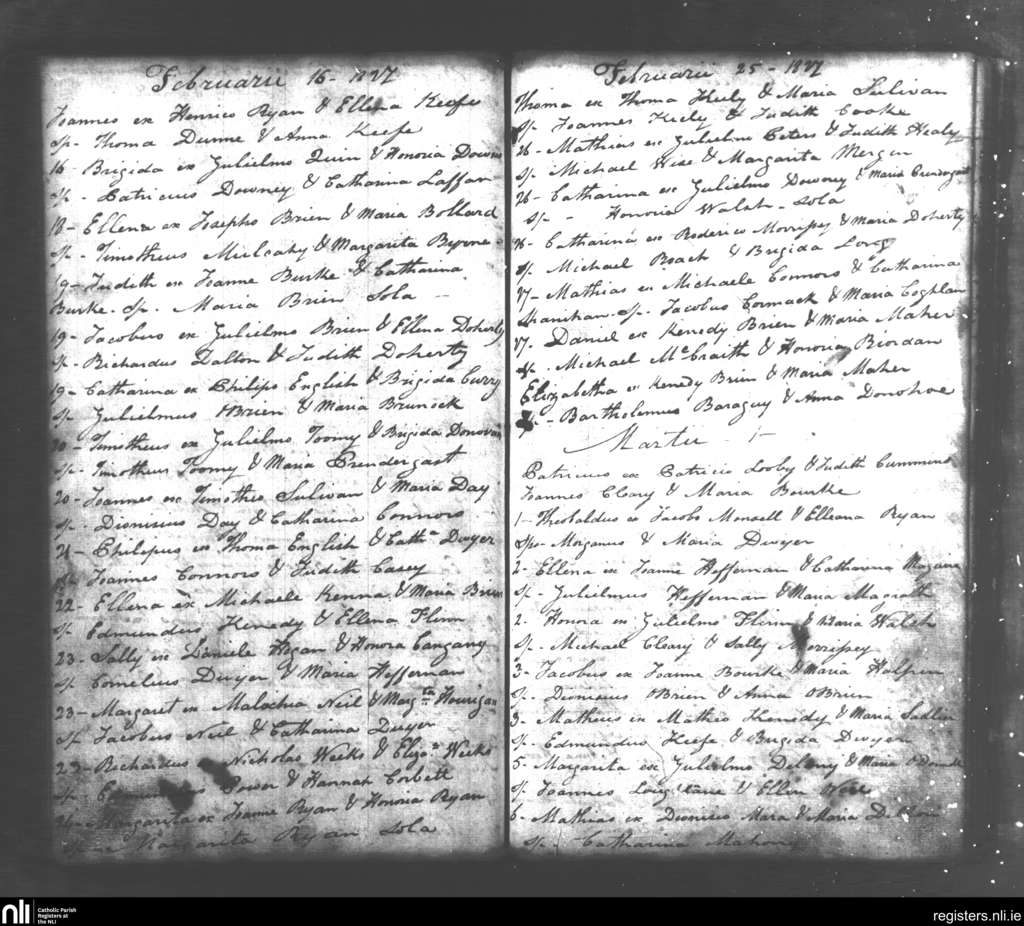 Februarii 16 - 1827
Joannes ex Henrico Ryan & Ellena Keefe
Sp. Thoma Dunne & Anna Keefe
16 - Brigida ex Gulielmo Quin & Honoria Downs
Sp. - Patricius Downey & Catharina Laffan
18 - Ellena ex Josepho Brien & Maria Bollard
Sp. - Timotheus Mulcahy & Margarita Byrne
19 - Judith ex Joanne Burke & Catharina
Burke. Sp. Maria Brien Sola -
19 - Jacobus ex Gulielmo Brien & Ellena Doherty
Sp. Richardus Dalton & Judith Doherty
19 - Catharina ex Philipo English & Brigida Curry
Sp. Gulielmus OBrien & Maria Brunock
20 - Timotheus ex Gulielmo Toomy & Brigida Donovan
Sp. Timotheus Toomy & Maria Prendergast
20 - Joannes ex Timotheo Sulivan & Maria Day
Sp. Dionisius Day & Catharina Connors
21 - Philipus ex Thoma English & Cathn. Dwyer
Sp. Joannes Connors & Judith Casey
22 - Ellena ex Michaele Kenna & Maria Brien
Sp. Edmundus Kenedy & Ellena Flinn
23 - Sally ex Daniele Hogan & Honora
Sp. Cornelius Dwyer & Maria Heffernan
23 - Margaret ex Malachia Neil & Margta Hourigan
Sp. Jacobus Neil & Catharina Dwyer
23 - Richardus Nicholas Weeks & Eliza. Weeks
Sp. Power & Hannah Corbett
Margarita ex Joanne Ryan & Honoria Ryan
Margarita Ryan Sola
Februarii 25 - 1827
Thoma ex Thoma Heely & Maria Sulivan
Sp. Joannes Heely & Judith Cooke
26 - Mathias ex Gulielmo Peters & Judith Healy
Sp. Michael Wise & Margarita Mergin
26 - Catharina ex Gulielmo Downy & Maria Prendergast
Sp. - Honoria Walsh - Sola
26 - Catharina ex Roderico Morrissey & Maria Doherty
Sp. Michael Roach & Brigida Long
27 - Mathias ex Michaele Connors & Catharina
Shanihan. Sp. Jacobus Cormack & Maria Coghlan
27. Daniel ex Kenedy Brien & Maria Maher
Sp. Michael McCraith & Honoria Riordan
Elizabetha ex Kenedy Brien & Maria Maher
Sp. - Bartholemus Baraguy & Anna Donohoe
Martii - 1 -
Patricius ex Patricio Looby & Judith Cummins
Joannes Cleary & Maria Bourke
1 - Theobaldus ex Jacobo Monsell & Elleana Ryan
Spo - Morganus & Maria Dwyer
2 - Ellena ex Joanne Heffernan & Catharina
Sp. Gulielmus Heffernan & Maria Magrath
2. Honora ex Gulielmo Flinn & Maria Walsh
Sp. Michael Cleary & Sally Morrissey
3 - Jacobus ex Joanne Bourke & Maria Halpin
Sp. Dionisius OBrien & Anna OBrien
3. Matheus ex Matheo Kenedy & Maria Sadlier
Sp. Edmundus Keefe & Brigida Dwyer
5. Margarita ex Gulielmo Delany & Maria
Sp. Joannes & Ellen
6 - Mathias ex Dionisio Mara & Maria
Sp. Catharina Mahony
nli
Catholic Parish
Registers at
the NLI
registers.nli.ie